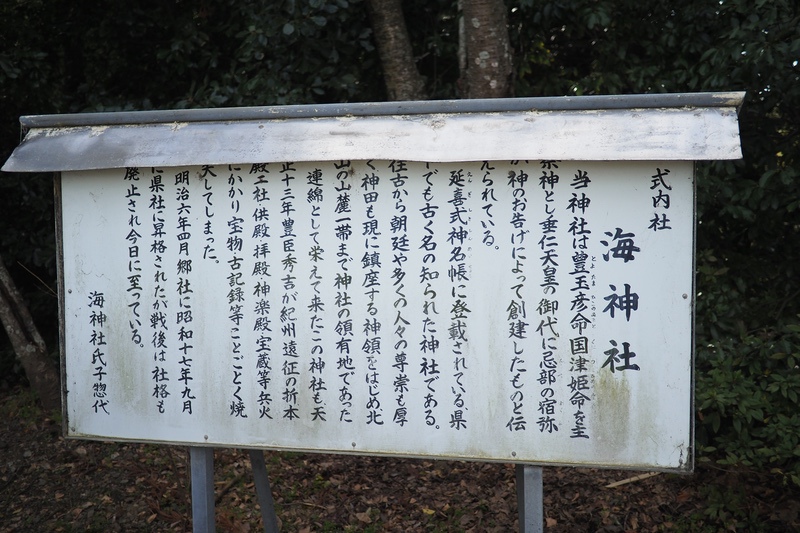 式内社
海神社
当神社は豊玉彦命国津姫命を主
祭神とし垂仁天皇の御代に忌部の宿弥
が神のお告げによって創建したものと伝
えられている。
延喜式神名帳に登載されている県
でも古く名の知られた神社である。
往古から朝廷や多くの人々の尊崇も厚
く神田も現に鎮座する神領をはじめ北
山の山麓一帯まで神社の領有地であった
連綿として栄えて来たこの神社も天
正十三年豊臣秀吉が紀州遠征の折本
殿工社供殿拝殿神楽殿宝蔵等兵火
にかかり宝物古記録等ことごとく焼
失してしまった。
明治六年四月郷社に昭和十七年九月
に県社に昇格されたが戦後は社格も
廃止され今日に至っている。
海神社氏子惣代